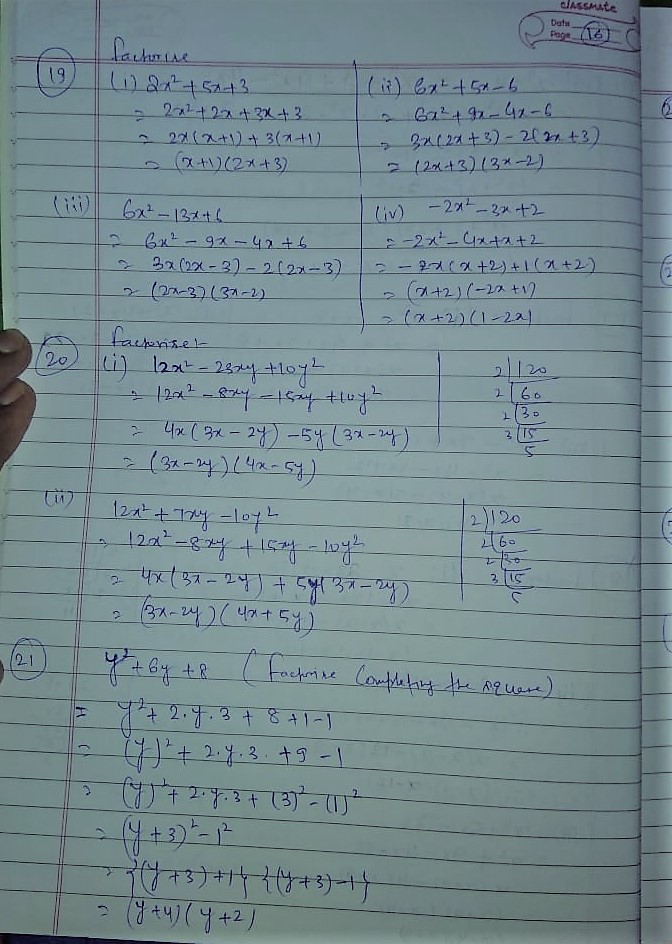 classmate
Date
Page 16
Factorise
19
(i) 2x² + 5x + 3
= 2x² + 2x + 3x + 3
= 2x(x+1) + 3(x+1)
= (x+1)(2x+3)
(ii) 6x² + 5x - 6
= 6x² + 9x - 4x - 6
= 3x(2x+3) - 2(2x+3)
= (2x+3)(3x-2)
(iii) 6x² - 13x + 6
= 6x² - 9x - 4x + 6
= 3x(2x-3) - 2(2x-3)
= (2x-3)(3x-2)
(iv) -2x² - 3x + 2
= -2x² - 4x + x + 2
= -2x(x+2) + 1(x+2)
= (x+2)(-2x+1)
= (x+2)(1-2x)
Factorise:-
20 (i) 12x² - 23xy + 10y²
= 12x² - 8xy - 15xy + 10y²
= 4x(3x-2y) - 5y(3x-2y)
= (3x-2y)(4x-5y)
2|120
2|60
2|30
3|15
5
(ii)
12x² + 7xy - 10y²
= 12x² - 8xy + 15xy - 10y²
= 4x(3x-2y) + 5y(3x-2y)
= (3x-2y)(4x+5y)
2|120
2|60
2|30
3|15
5
21 y² + 6y + 8 (Factorise Completing the square)
= y² + 2.y.3 + 8 + 1 - 1
= (y)² + 2.y.3. + 9 - 1
= (y)² + 2.y.3 + (3)² - (1)²
= (y+3)² - 1²
= {(y+3)+1} {(y+3)-1}
= (y+4)(y+2)